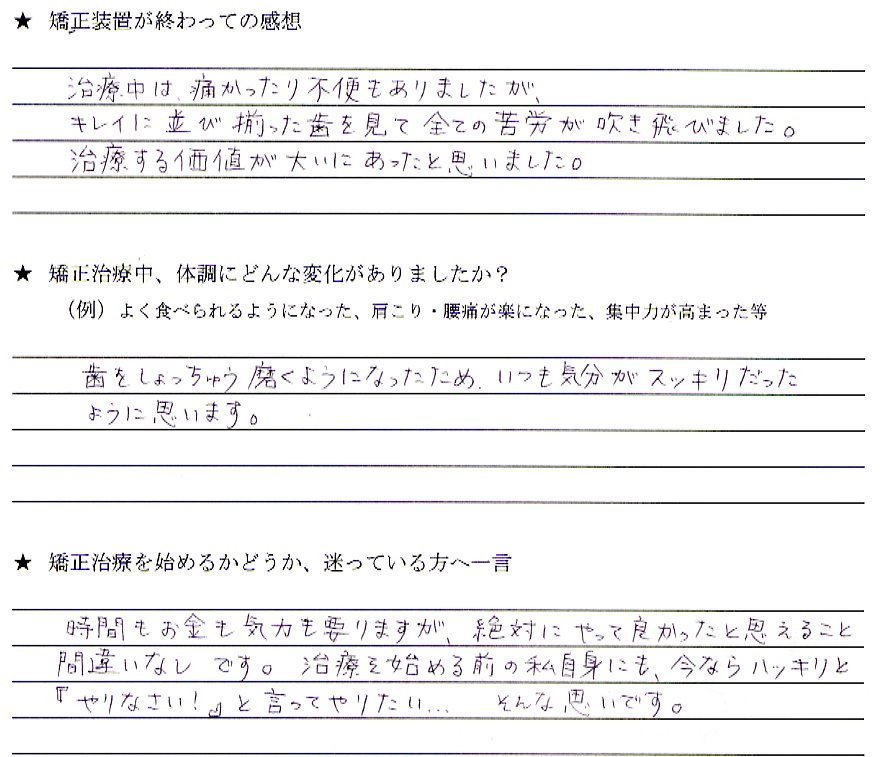 ★ 矯正装置が終わっての感想
治療中は、痛かったり不便もありましたが、
キレイに並び揃った歯を見て全ての苦労が吹き飛びました。
治療する価値が大いにあったと思いました。
★ 矯正治療中、体調にどんな変化がありましたか？
（例）よく食べられるようになった、肩こり・腰痛が楽になった、集中力が高まった等
歯をしょっちゅう磨くようになったため、いつも気分がスッキリだった
ように思います。
★ 矯正治療を始めるかどうか、迷っている方へ一言
時間もお金も気力も要りますが、絶対にやって良かったと思えること
間違いなしです。治療を始める前の私自身にも、今ならハッキリと
『やりなさい！』と言ってやりたい… そんな思いです。